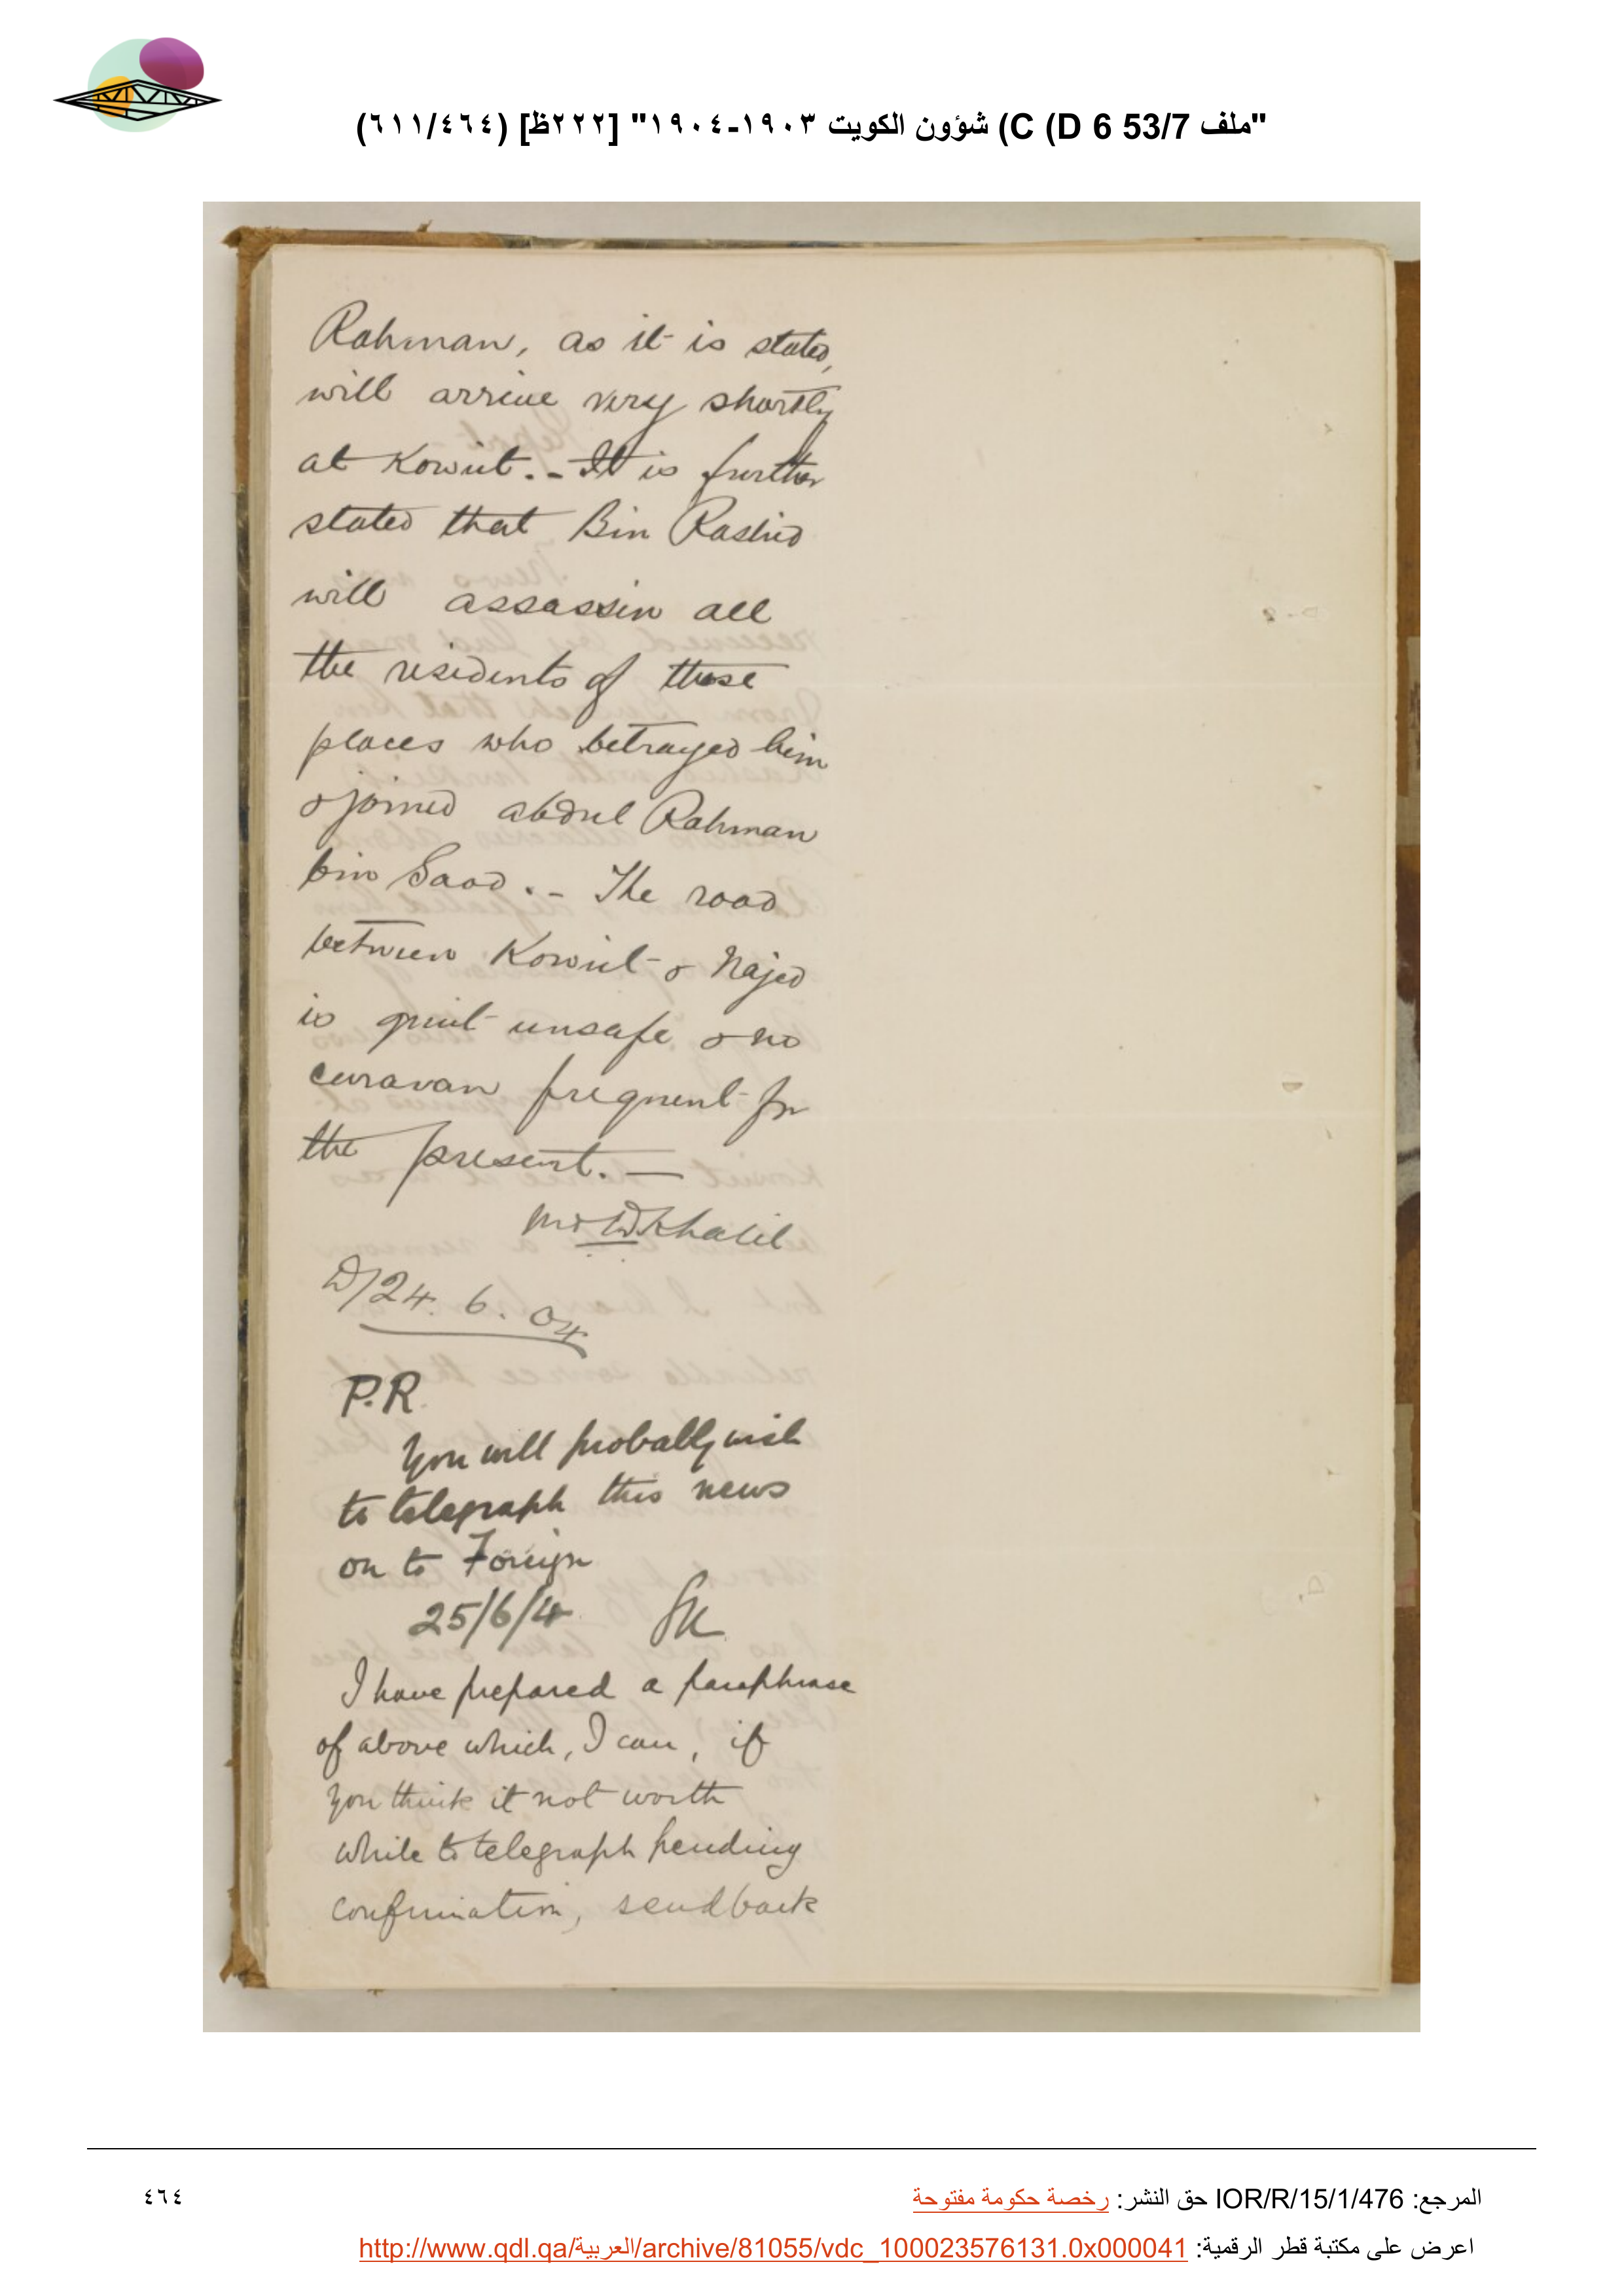 "ملف 53/7 C (D 6) شؤون الكويت ١٩٠٣-١٩٠٤" [٢٢٢ظ] (٦١١/٤٦٤)
Rahman, as it is stated,
will arrive very shortly
at Koweit. - It is further
stated that Bin Rashid
will assassin all
the residents of these
places who betrayed him
& joined abdul Rahman
bin Saod. - The road
between Koweit & Najed
is quit unsafe & no
caravan frequent for
the present. —
Khalil
D/24. 6. 04
P.R.
You will probably wish
to telegraph this news
on to Foreign
25/6/4
I have prepared a paraphrase
of above which, I can, if
you think it not worth
while to telegraph pending
confirmation, send back
المرجع: IOR/R/15/1/476 حق النشر: رخصة حكومة مفتوحة
٤٦٤
اعرض على مكتبة قطر الرقمية: http://www.qdl.qa/العربية/archive/81055/vdc_100023576131.0x000041